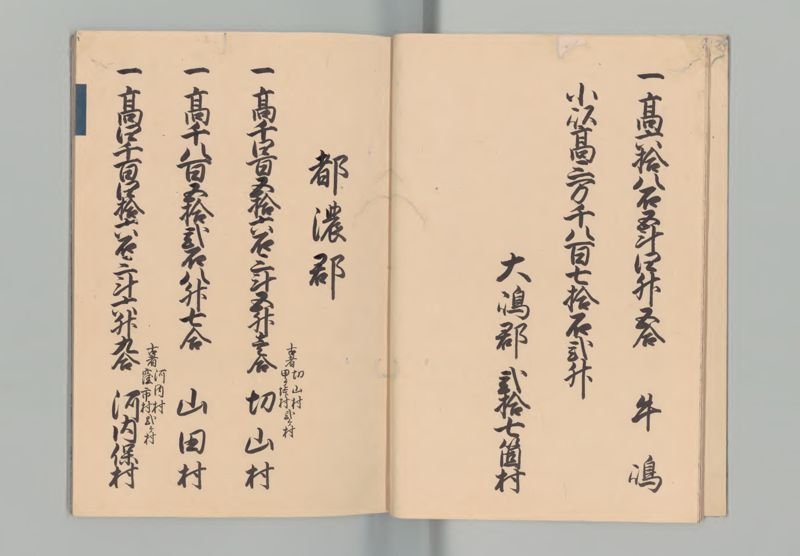 一高六拾八石五斗四升五合 牛嶋
小以高三万千八百七拾石弐升
大嶋郡 弐拾七箇村
都濃郡
一高千四百五拾六石三斗五升壱合 切山村
古者切山村
村弐ヶ村
一高千八百五拾弐石八升七合 山田村
一高四千百四拾六石三斗六升九合 河内保村
古者河内村
窪市村弐ヶ村